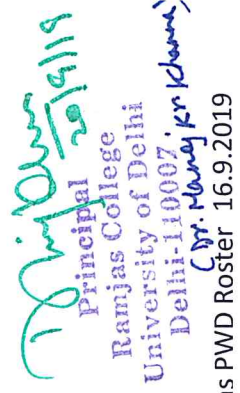 20/9/19
Principal
Ramjas College
University of Delhi
Delhi-110007
(Dr. Manoj Kr. Khanna)
as PWD Roster 16.9.2019